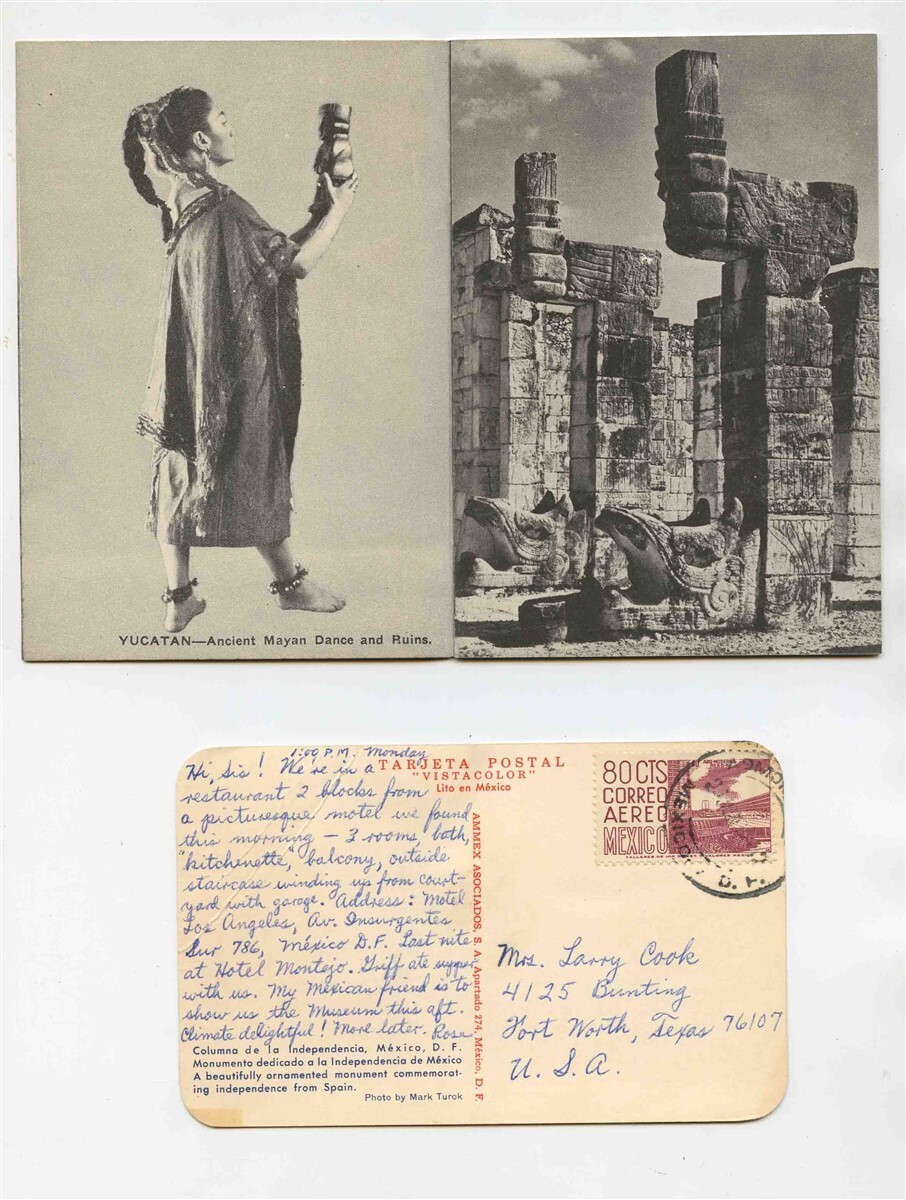 YUCATAN—Ancient Mayan Dance and Ruins.
1:00 P.M. Monday
Hi, Sis! We're in a
restaurant 2 blocks from
a picturesque motel we found
this morning — 3 rooms, bath,
"kitchenette," balcony, outside
staircase winding up from court-
yard with garage. Address: Motel
Los Angeles, Av. Insurgentes
Sur 786, México D.F. Last nite
at Hotel Montejo. Griff ate supper
with us. My Mexican friend is to
show us the Museum this aft.
Climate delightful! More later. Rose
Columna de la Independencia, México, D. F.
Monumento dedicado a la Independencia de México
A beautifully ornamented monument commemorat-
ing independence from Spain.
Photo by Mark Turok
TARJETA POSTAL
"VISTACOLOR"
Lito en México
AMMEX ASOCIADOS, S. A. Apartado 274, México, D. F.
80CTS
CORREO
AEREO
MEXICO
MEXICO
D. F.
Mrs. Larry Cook
4125 Bunting
Fort Worth, Texas 76107
U. S. A.